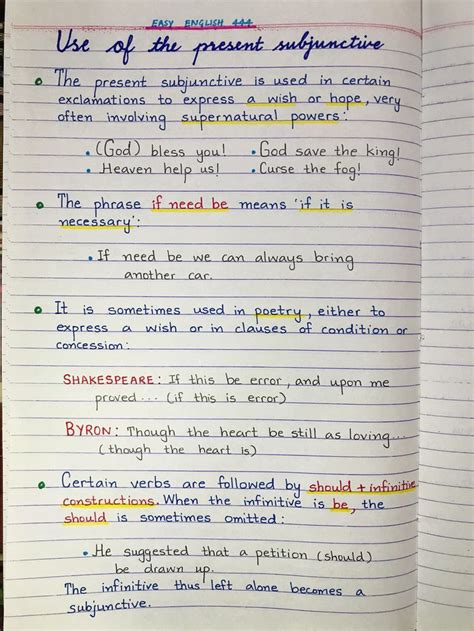 EASY ENGLISH 444
Use of the present subjunctive
The present subjunctive is used in certain
exclamations to express a wish or hope, very
often involving supernatural powers:
• (God) bless you! • God save the king!
• Heaven help us! • Curse the fog!
The phrase if need be means 'if it is
necessary':
• If need be we can always bring
another car.
It is sometimes used in poetry, either to
express a wish or in clauses of condition or
concession:
SHAKESPEARE: If this be error, and upon me
proved... (if this is error)
BYRON: Though the heart be still as loving...
(though the heart is)
Certain verbs are followed by should + infinitive
constructions. When the infinitive is be, the
should is sometimes omitted:
• He suggested that a petition (should)
be drawn up.
The infinitive thus left alone becomes a
subjunctive.